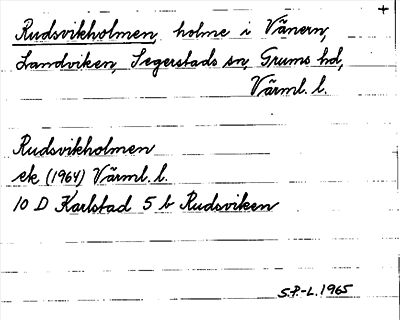 +
Rudsvikholmen, holme i Vänern,
Landviken, Segerstads sn, Grums hd,
Värml. l.
Rudsvikholmen
ek (1964) Värml. l.
10 D Karlstad 5 b Rudsviken
S.P.-L. 1965